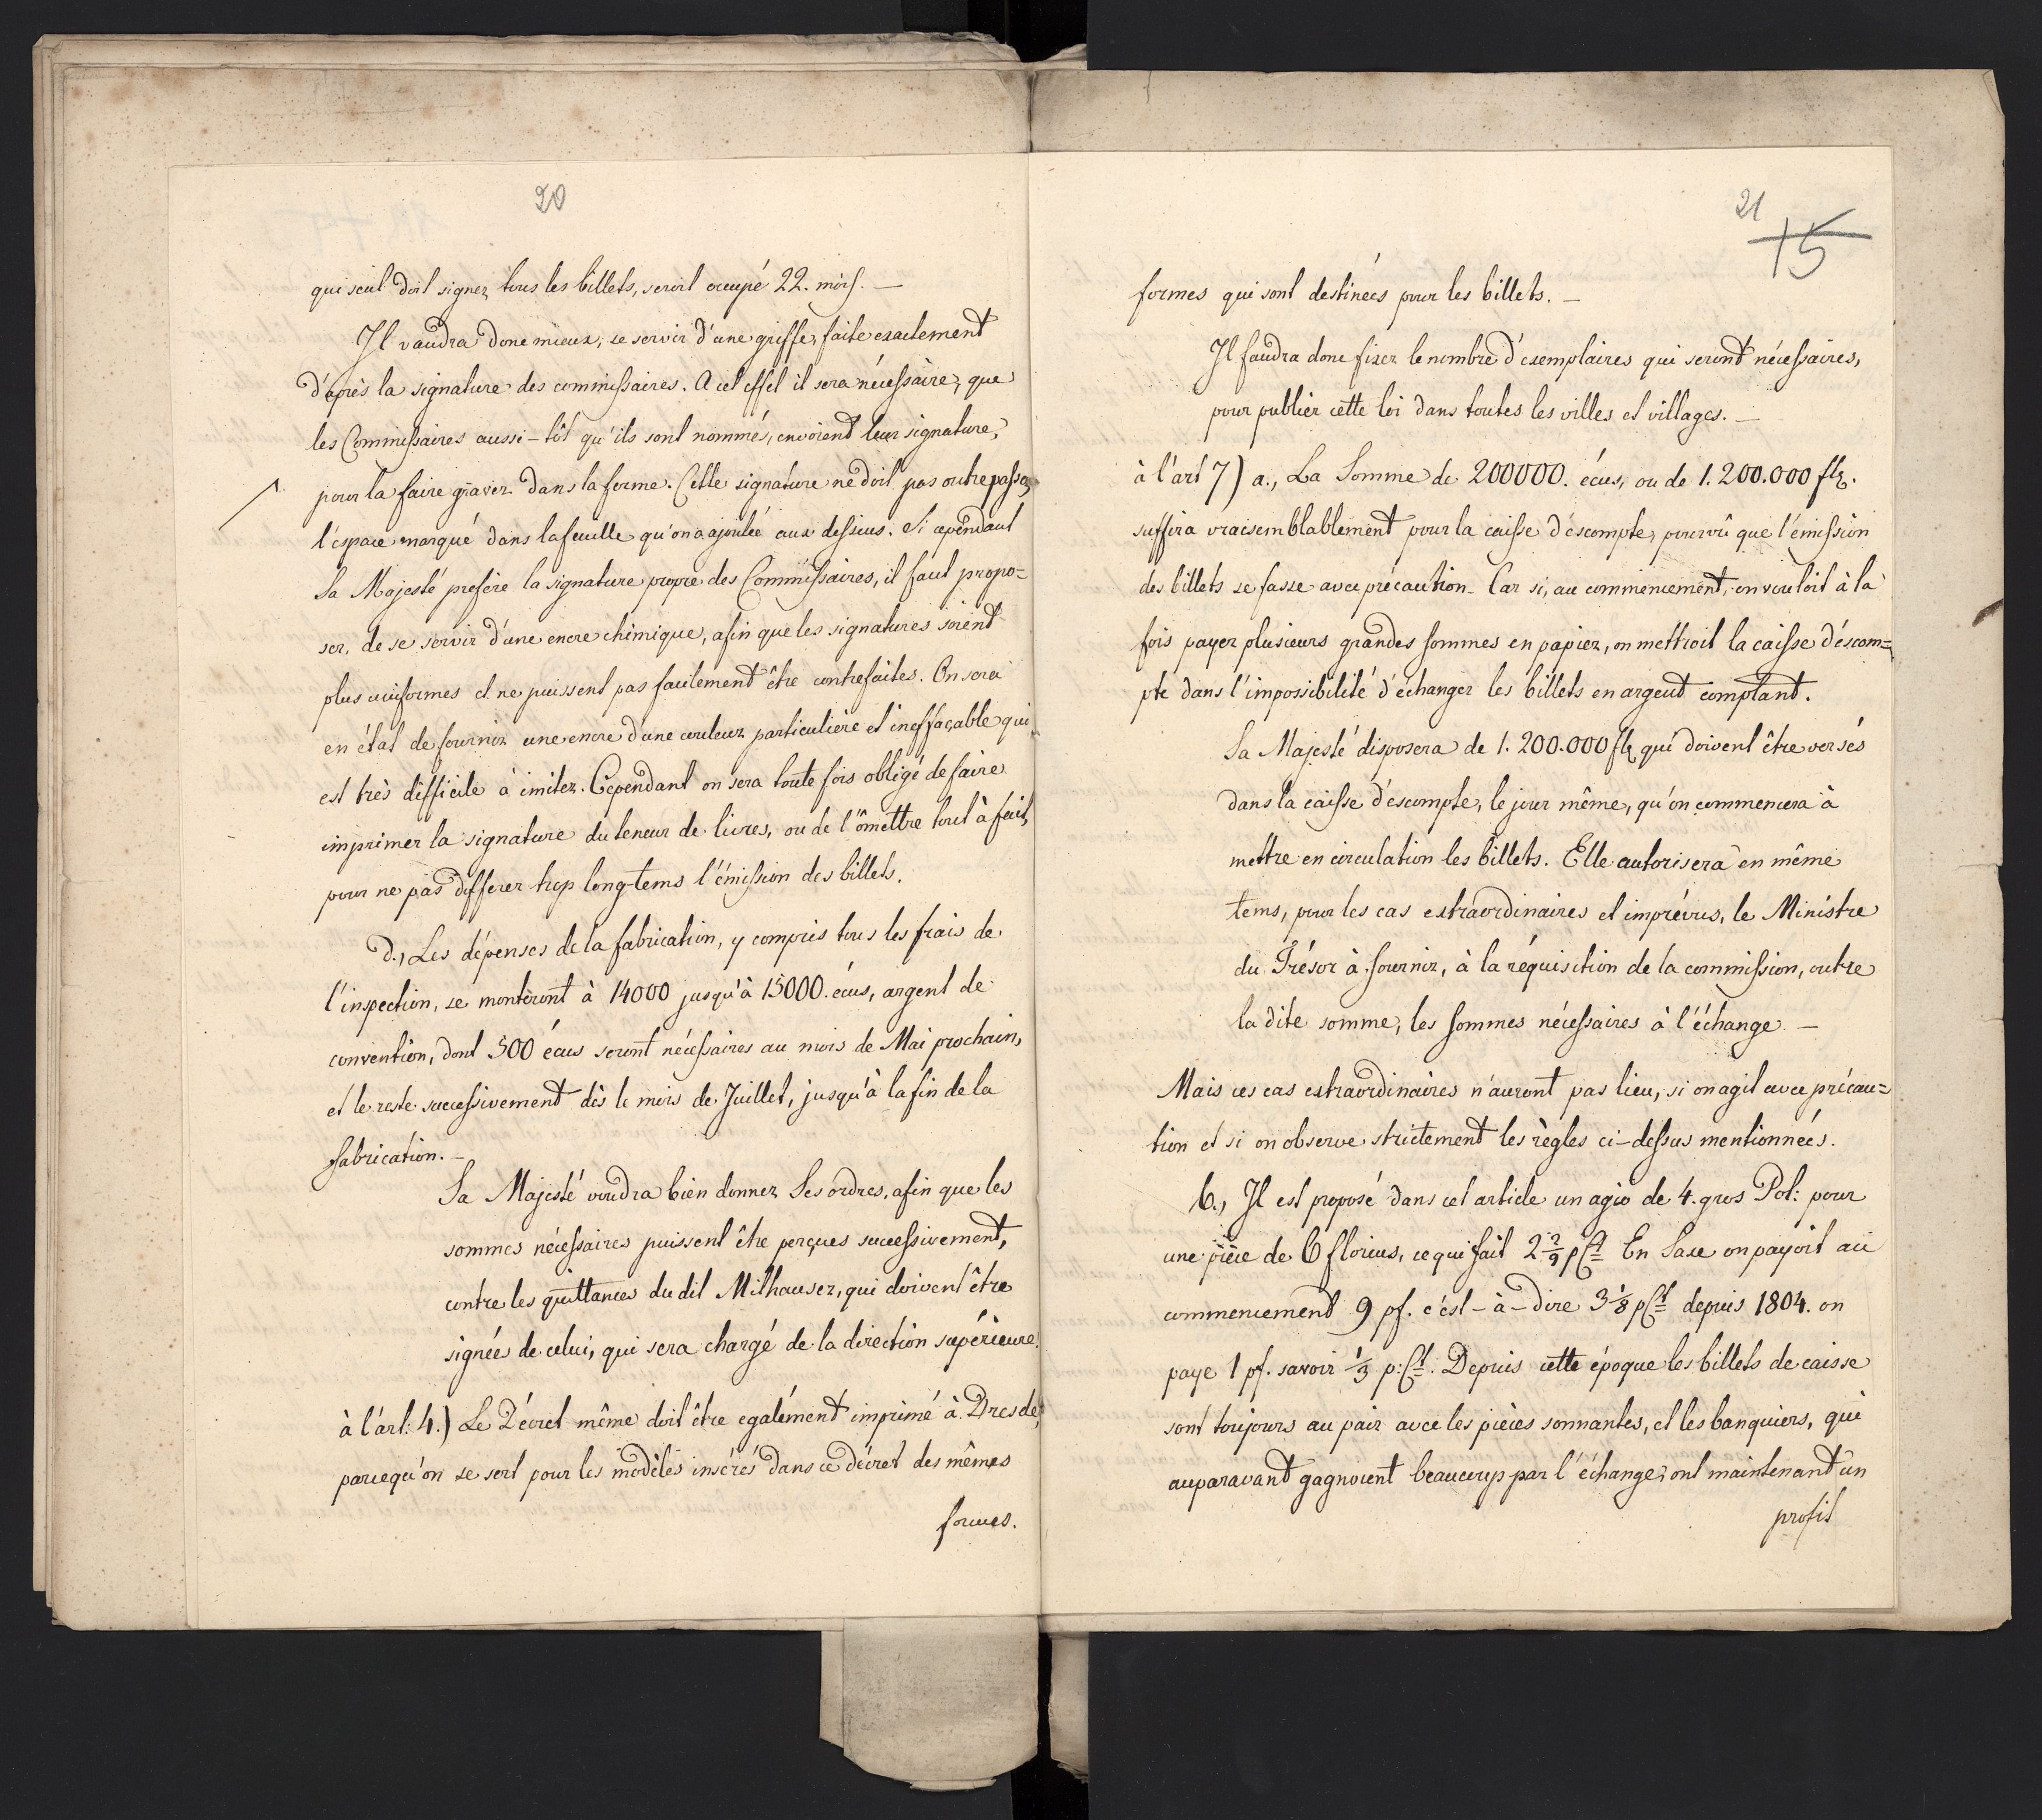 20
qui seul doit signer tous les billets, seroit occupé 22. mois. —
Il vaudra donc mieux, se servir d'une griffe, faite exactement
d'après la signature des commissaires. A cet effet il sera nécessaire, que
les Commissaires aussi-tôt qu'ils sont nommés, envoient leur signature,
pour la faire graver dans la forme. Cette signature ne doit pas outrepasser
l'espace marqué dans la feuille qu'on a ajoutée aux dessins. Si cependant
Sa Majesté prefère la signature propre des Commissaires, il faut propo=
ser, de se servir d'une encre chimique, afin que les signatures soient
plus uniformes et ne puissent pas facilement être contrefaites. On sera
en état de fournir une encre d'une couleur particulière et ineffaçable qui
est très difficile à imiter. Cependant on sera toute fois obligé de faire
imprimer la signature du teneur de livres, ou de l'omettre tout à fait,
pour ne pas differer trop long-tems l'émission des billets.
d., Les dépenses de la fabrication, y compris tous les frais de
l'inspection, se monteront à 14000 jusqu'à 15000. écus, argent de
convention, dont 500 écus seront nécessaires au mois de Mai prochain,
et le reste successivement dès le mois de Juillet, jusqu'à la fin de la
fabrication. —
Sa Majesté voudra bien donner Ses ordres, afin que les
sommes nécessaires puissent être perçues successivement,
contre les quittances du dit Milhauser, qui doivent être
signées de celui, qui sera chargé de la direction supérieure.
à l'art: 4.) Le Décret même doit être egalément imprimé à Dresde,
parcequ'on se sert pour les modèles insérés dans ce décret des mêmes
formes.
21
15
formes qui sont destinées pour les billets. —
Il faudra donc fixer le nombre d'exemplaires qui seront nécessaires,
pour publier cette loi dans toutes les villes et villages. —
à l'art 7) a., La Somme de 200000. écus, ou de 1.200.000 flr.
suffira vraisemblablement pour la caisse d'escompte, pourvû que l'émission
des billets se fasse avec précaution. Car si, au commencement, on vouloit à la
fois payer plusieurs grandes sommes en papier, on mettroit la caisse d'éscom=
pte dans l'impossibilité d'échanger les billets en argent comptant.
Sa Majesté disposera de 1.200.000 flr qui doivent être versés
dans la caisse d'escompte, le jour même, qu'on commencera à
mettre en circulation les billets. Elle autorisera en même
tems, pour les cas extraordinaires et imprévus, le Ministre
du Trésor à fournir, à la réquisition de la commission, outre
la dite somme, les sommes nécessaires à l'échange. —
Mais ces cas extraordinaires n'auront pas lieu, si on agit avec précau=
tion et si on observe strictement les règles ci-dessus mentionnées.
b., Il est proposé dans cet article un agio de 4. gros Pol: pour
une pièce de 6 florins, ce qui fait 2 2/9 pCt En Saxe on payoit au
commencement 9 pf. c'est-à-dire 3 1/8 pCt depuis 1804. on
paye 1 pf. savoir 1/3 p:Ct. Depuis cette époque les billets de caisse
sont toujours au pair avec les pièces sonnantes, et les banquiers, qui
auparavant gagnoient beaucoup par l'échange, ont maintenant un
profit